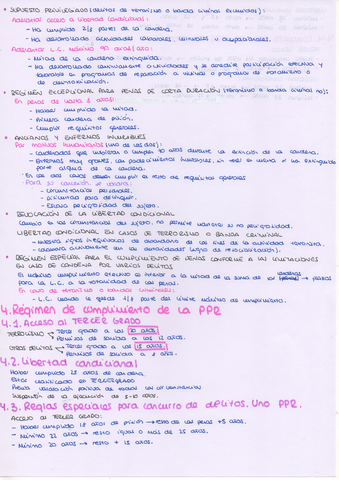 * SUPUESTO PRIVILEGIADO (delitos de terrorismo o banda criminal excluidos):
Adelantar acceso a libertad condicional:
- Ha cumplido 2/3 partes de la condena.
- Ha desarrollado actividades laborales, culturales u ocupacionales.
Adelantar L.C. máximo 90 días/año:
- Mitad de la condena extinguida.
- Ha desarrollado continuamente actividades y se acredite participación efectiva y
favorable en programas de reparación a víctimas o programas de tratamiento o
de desintoxicación.
* RÉGIMEN EXCEPCIONAL PARA PENAS DE CORTA DURACIÓN (terrorismo o banda criminal no):
En penas de hasta 3 años:
- Haber cumplido la mitad.
- Primera condena de prisión.
- Cumplir requisitos generales.
* ANCIANOS Y ENFERMOS INCURABLES
Por motivos humanitarios (uno de los dos):
- Condenados que hubieran cumplido 70 años durante la extinción de la condena.
- Enfermos muy graves, con padecimientos incurables,
parte alguna de la condena.
- En los dos casos deben cumplir el resto de requisitos generales
- Para su concesión se valora:
- Circunstancias personales.
- Dificultad para delinquir.
- Escasa peligrosidad del sujeto.
* REVOCACIÓN DE LA LIBERTAD CONDICIONAL
Cambio en las circunstancias del sujeto, no permite mantener su no peligrosidad.
LIBERTAD CONDICIONAL EN CASOS DE TERRORISMO O BANDA CRIMINAL
- Muestra signos inequívocos de abandono de los fines de la actividad terrorista.
- Colabora activamente con las autoridades
* RÉGIMEN ESPECIAL PARA EL CUMPLIMIENTO DE PENAS CONFORME A LAS LIMITACIONES
EN CASO DE CONDENA POR VARIOS DELITOS
El máximo cumplimiento efectivo es inferior a la mitad de la suma de las condenas
para la L.C. a la totalidad de las penas.
En caso de terrorismo o bandas criminales:
- L.C. cuando le quede 1/8 parte del límite máximo de cumplimiento.
4. Régimen de cumplimiento de la PPR
4.1. Acceso al TERCER GRADO
TERRORISMO Tercer grado a los 20 años.
Permisos de salida a los 12 años.
OTROS DELITOS Tercer grado a los 15 años.
Permisos de salida a 8 años.
4.2. Libertad condicional
Haber cumplido 25 años de condena.
Estar clasificado en TERCER GRADO
Previa valoración positiva de todas las circunstancias
Suspensión de la ejecución de 5-10 años.
4.3. Reglas especiales para concurso de delitos. Uno PPR.
ACCESO AL TERCER GRADO:
- Haber cumplido 18 años de prisión → resto de las penas +5 años.
- Mínimo 22 años → resto igual o más de 25 años.
- Mínimo 20 años → resto + 15 años.